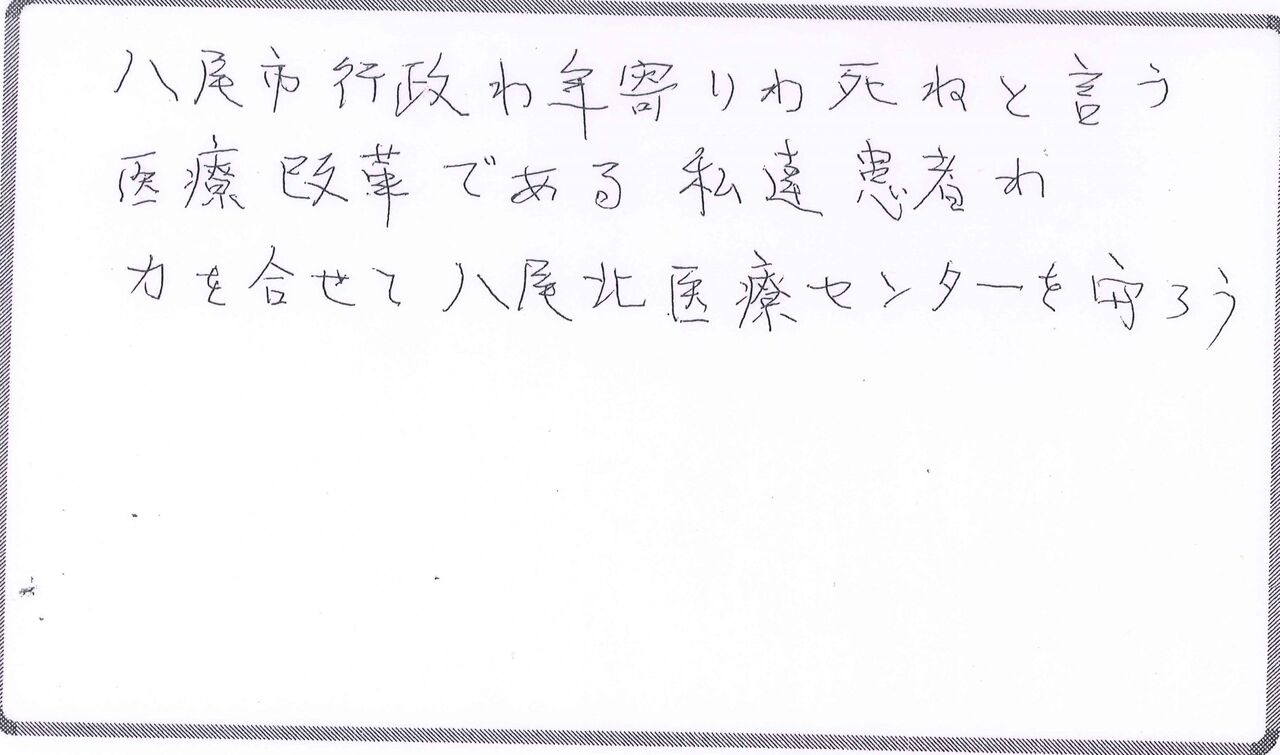 八尾市行政わ年寄りわ死ねと言う
医療改革である私達患者わ
力を合せて八尾北医療センターを守ろう